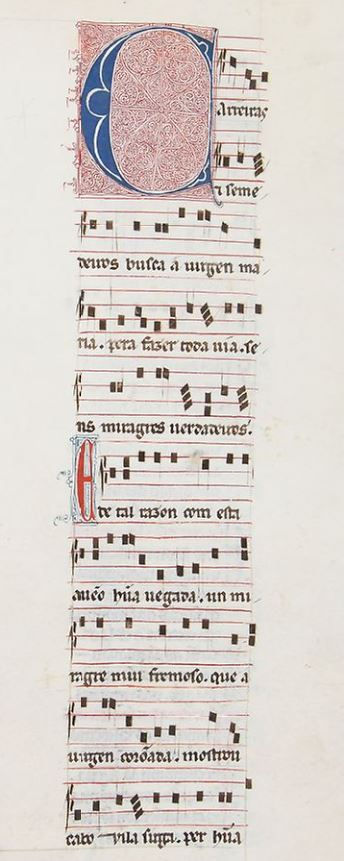 Carreiras
e semedeiros busca a uirgen ma
ria. pera fazer toda uia. se
us miragres uerdadeiros.
E de tal razon com esta
aueo hũa uegada. un mi
ragre mui fremoso. que a
uirgen corõada. mostrou
cabo uila sirga. per hũa